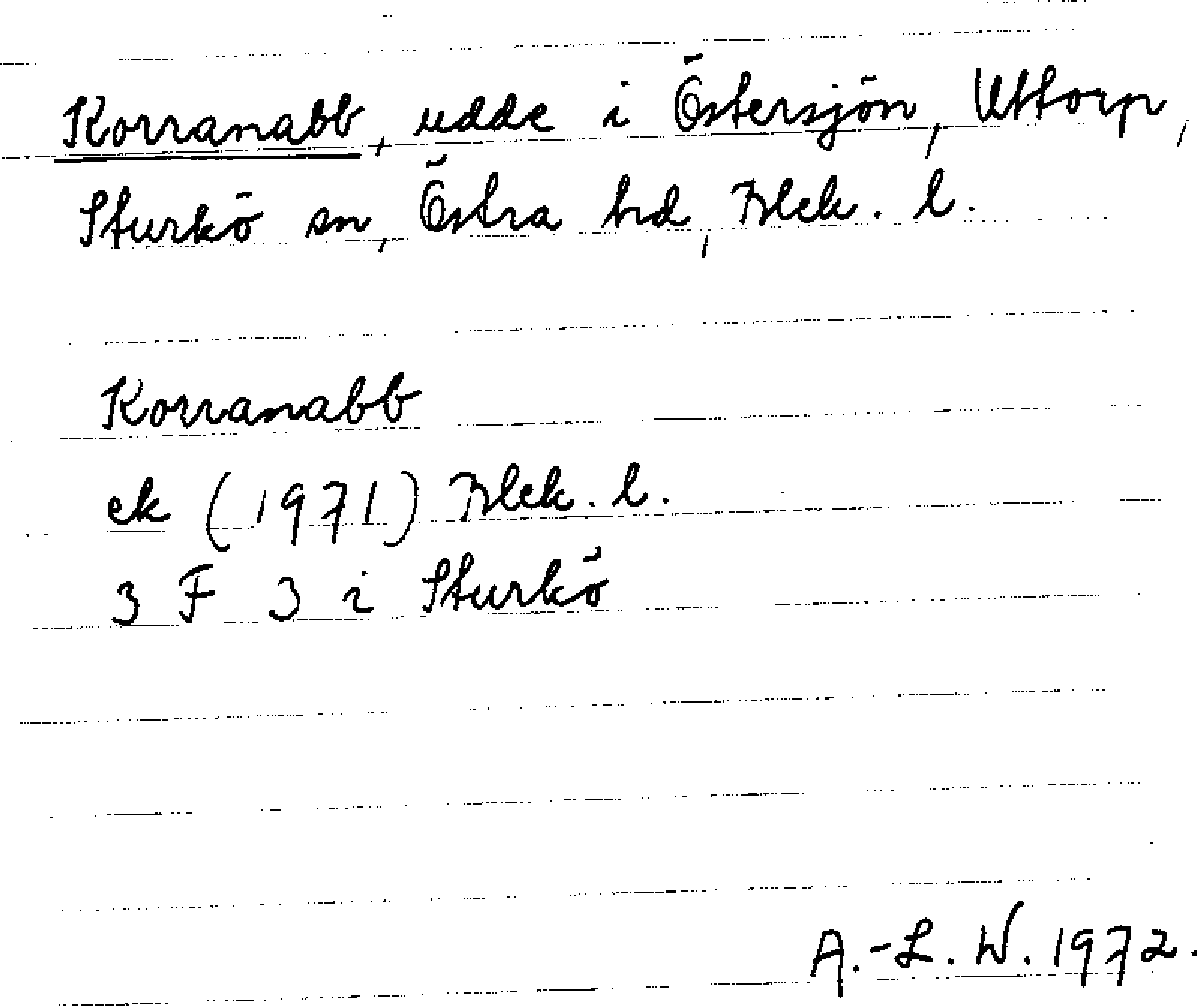 Korranabb, udde i Östersjön, Uttorp,
Sturkö sn, Östra hd, Blek. l.
Korranabb
ek (1971) Blek. l.
3 F 3 i Sturkö
A.-L. W. 1972.